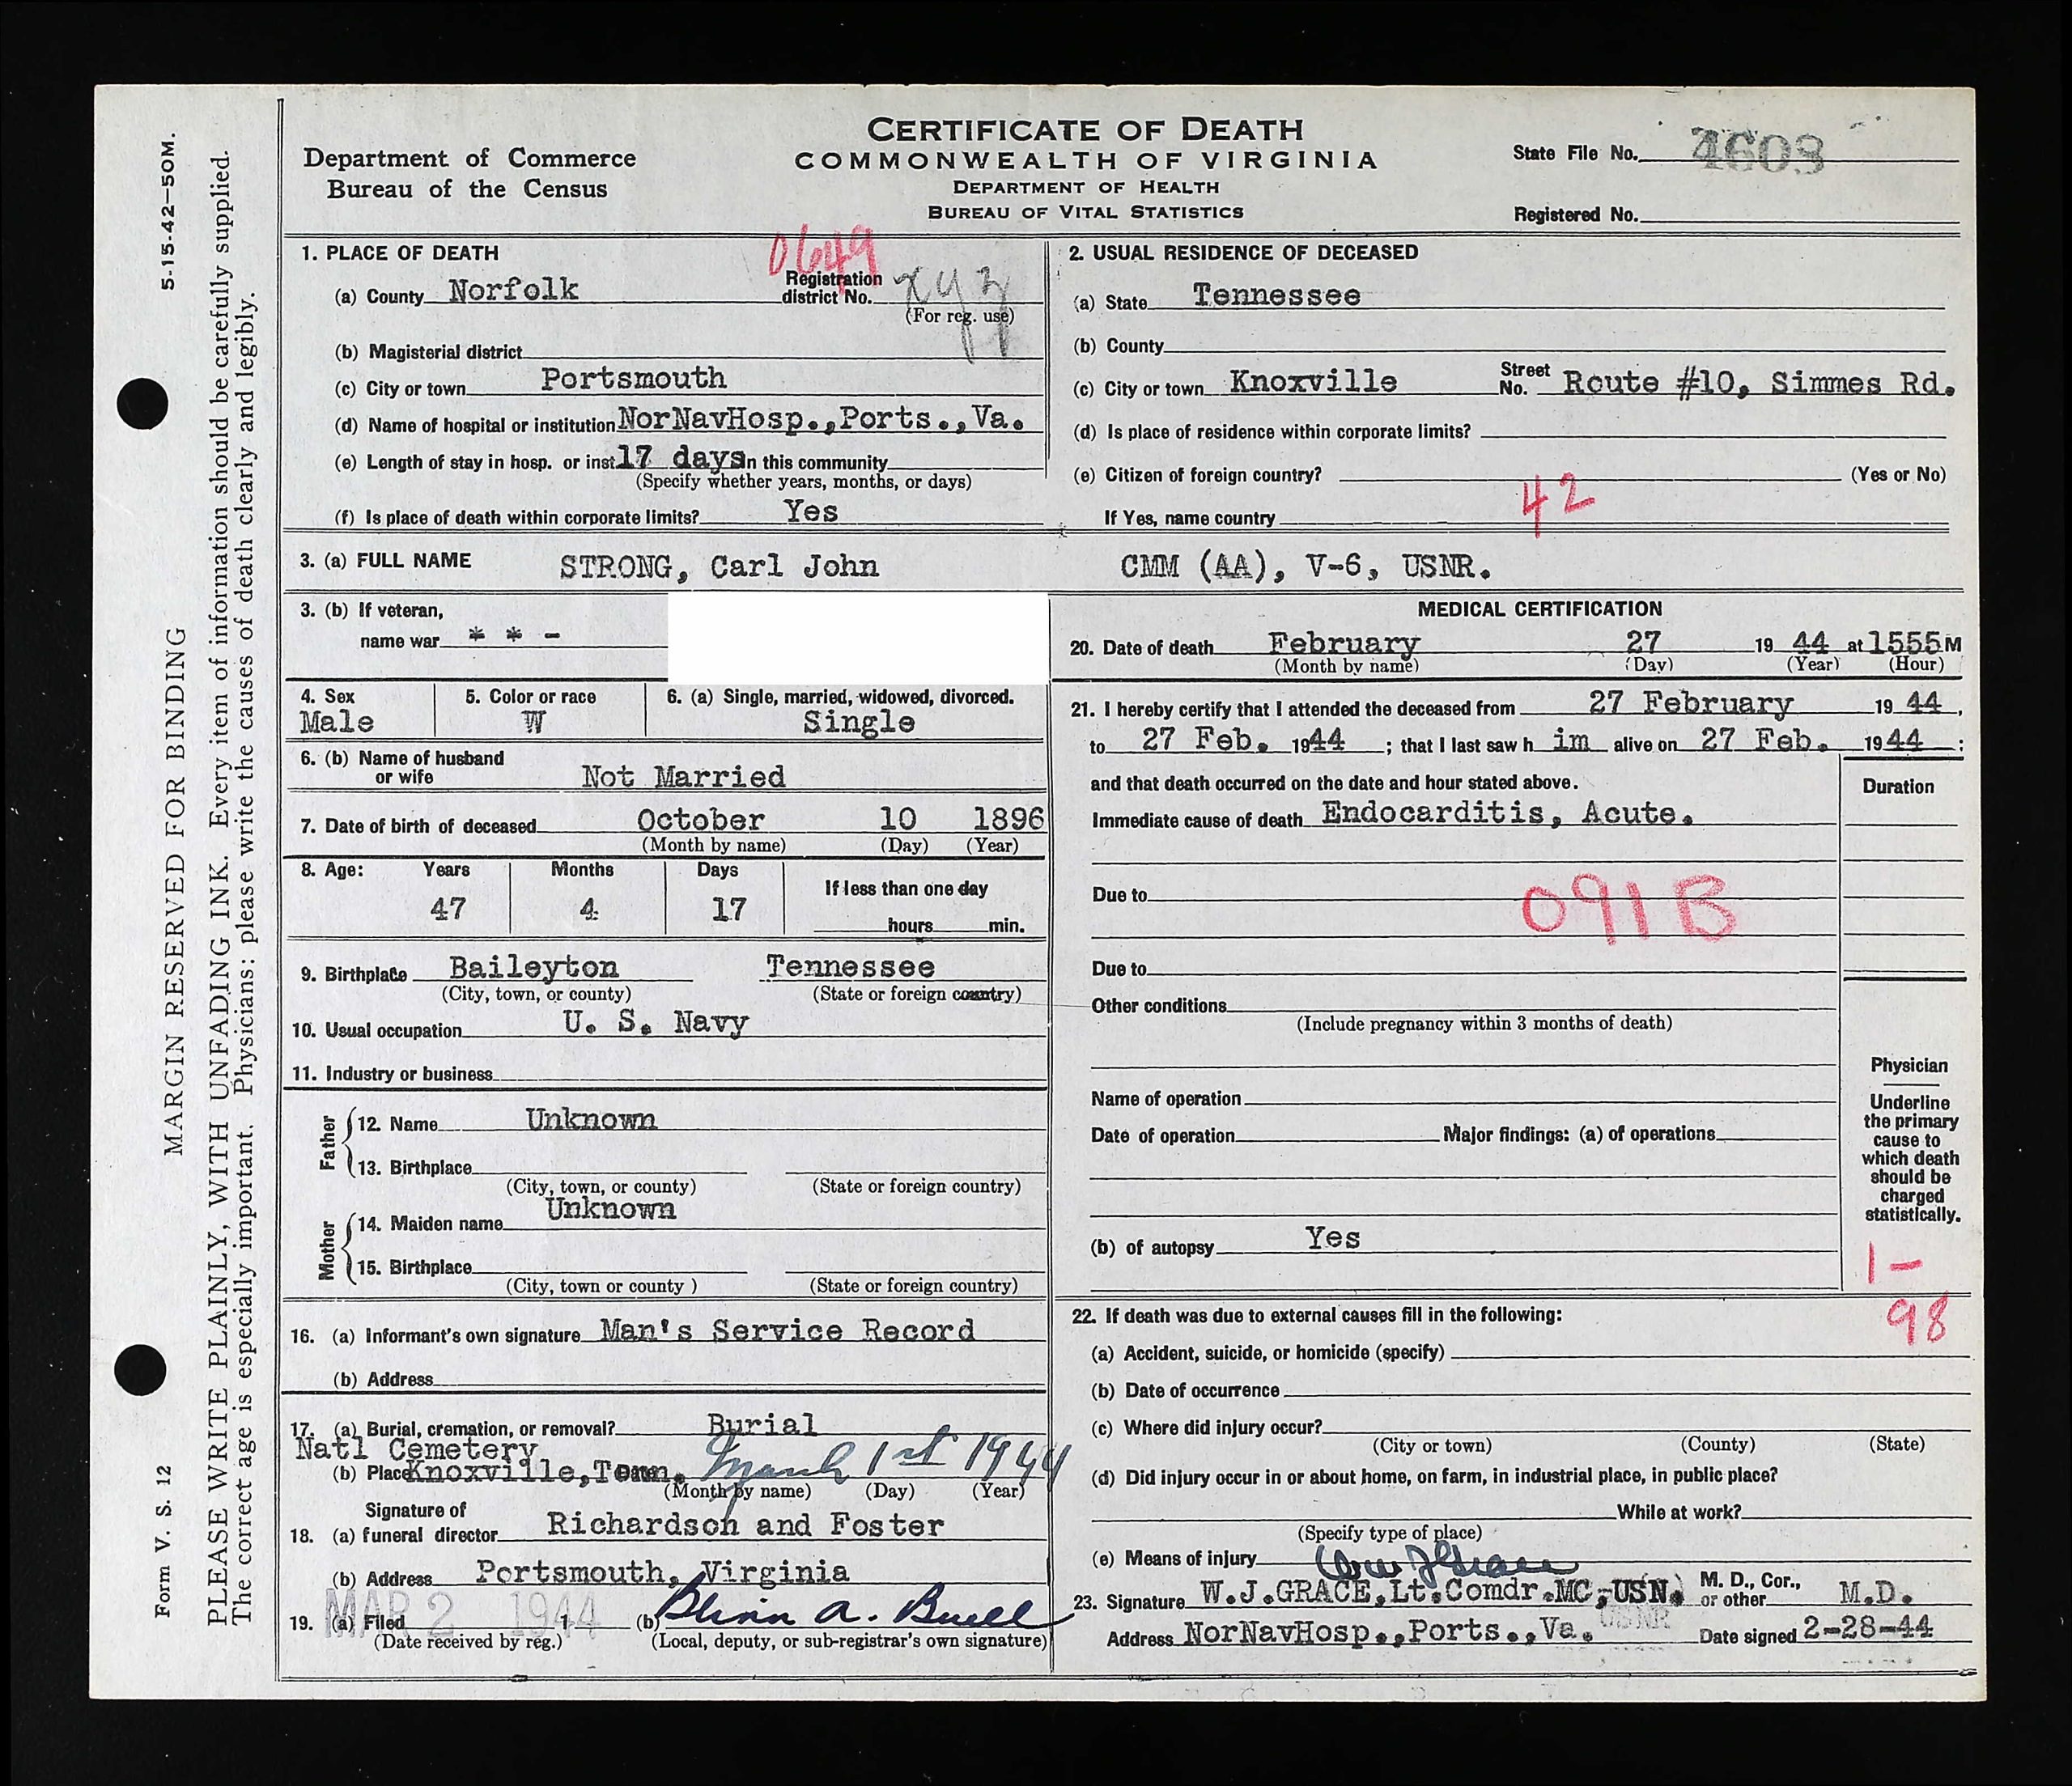 CERTIFICATE OF DEATH
COMMONWEALTH OF VIRGINIA
DEPARTMENT OF HEALTH
BUREAU OF VITAL STATISTICS
Department of Commerce
Bureau of the Census
State File No. 4603
Registered No.
5-15-42—50M.
MARGIN RESERVED FOR BINDING
PLEASE WRITE PLAINLY, WITH UNFADING INK. Every item of information should be carefully supplied.
The correct age is especially important. Physicians: please write the causes of death clearly and legibly.
Form V. S. 12
1. PLACE OF DEATH
0649
(a) County Norfolk Registration district No. xyz
(For reg. use)
(b) Magisterial district
(c) City or town Portsmouth
(d) Name of hospital or institution NorNavHosp.,Ports.,Va.
(e) Length of stay in hosp. or inst. 17 days In this community
(Specify whether years, months, or days)
(f) Is place of death within corporate limits? Yes
2. USUAL RESIDENCE OF DECEASED
(a) State Tennessee
(b) County
(c) City or town Knoxville Street No. Route #10, Simmes Rd.
(d) Is place of residence within corporate limits?
(e) Citizen of foreign country? (Yes or No)
42
If Yes, name country
3. (a) FULL NAME STRONG, Carl John CMM (AA), V-6, USNR.
3. (b) If veteran,
name war * * -
4. Sex 5. Color or race 6. (a) Single, married, widowed, divorced.
Male W Single
6. (b) Name of husband
or wife Not Married
7. Date of birth of deceased October 10 1896
(Month by name) (Day) (Year)
8. Age: Years Months Days If less than one day
47 4 17 hours min.
9. Birthplace Baileyton Tennessee
(City, town, or county) (State or foreign country)
10. Usual occupation U. S. Navy
11. Industry or business
Father
12. Name Unknown
13. Birthplace
(City, town, or county) (State or foreign country)
Mother
14. Maiden name Unknown
15. Birthplace
(City, town or county ) (State or foreign country)
16. (a) Informant's own signature Man's Service Record
(b) Address
17. (a) Burial, cremation, or removal? Burial
Natl Cemetery
(b) Place Knoxville,Tenn. Date March 1st 1944
(Month by name) (Day) (Year)
Signature of
18. (a) funeral director Richardson and Foster
(b) Address Portsmouth, Virginia
19. (a) Filed MAR 2 1944 1 (b) Blinn A. Buell
(Date received by reg.) (Local, deputy, or sub-registrar's own signature)
MEDICAL CERTIFICATION
20. Date of death February 27 19 44 at 1555 M
(Month by name) (Day) (Year) (Hour)
21. I hereby certify that I attended the deceased from 27 February 19 44,
to 27 Feb. 1944 ; that I last saw h im alive on 27 Feb. 1944 ;
and that death occurred on the date and hour stated above. Duration
Immediate cause of death Endocarditis, Acute.
Due to
091B
Due to
Other conditions
(Include pregnancy within 3 months of death)
Name of operation
Date of operation Major findings: (a) of operations
(b) of autopsy Yes
Physician
Underline
the primary
cause to
which death
should be
charged
statistically.
1-
98
22. If death was due to external causes fill in the following:
(a) Accident, suicide, or homicide (specify)
(b) Date of occurrence
(c) Where did injury occur?
(City or town) (County) (State)
(d) Did injury occur in or about home, on farm, in industrial place, in public place?
While at work?
(Specify type of place)
(e) Means of injury Wm J Grace
23. Signature W.J.GRACE,Lt.Comdr.MC,-USN. M. D., Cor., or other M.D.
USNR
Address NorNavHosp.,Ports.,Va. Date signed 2-28-44